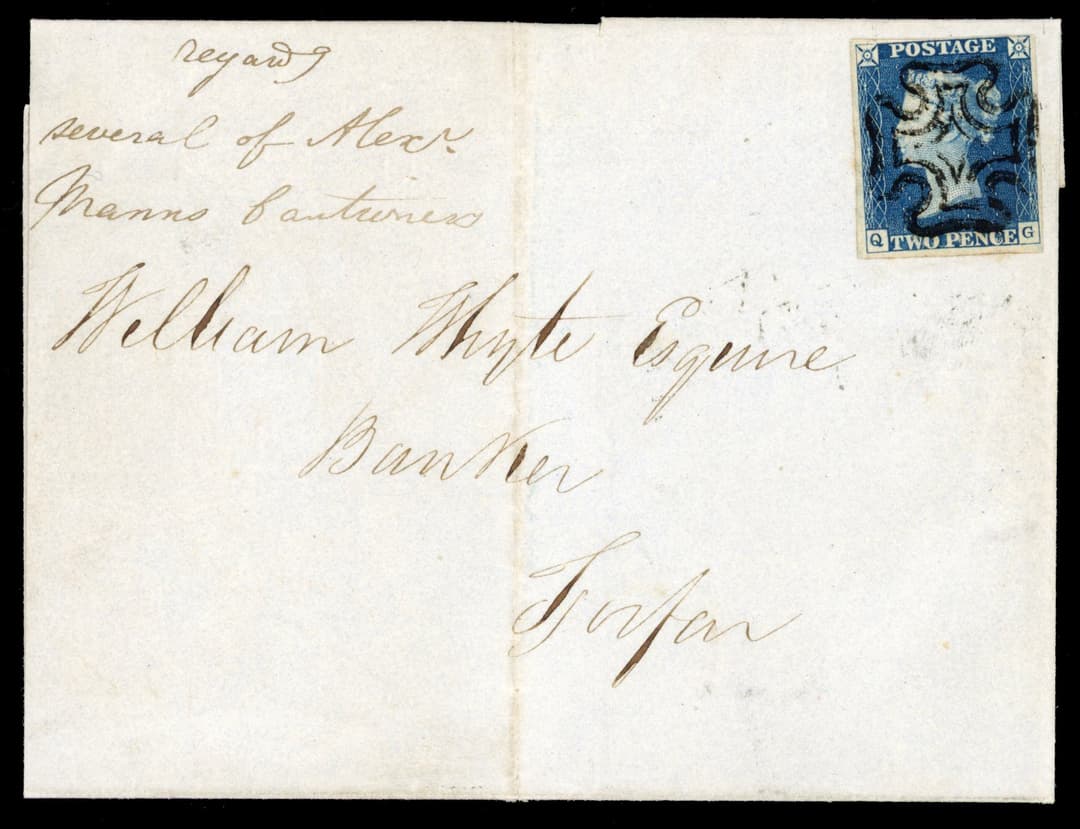 regardg
several of Alexr
Manns Cautioners
William Whyte Esquire
Banker
Forfar
POSTAGE
Q TWO PENCE G